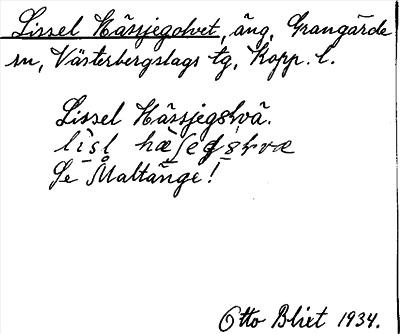 Lissel Hässjegolvet, äng, Grangärde
sn, Västerbergslags tg, Kopp. l.
Lissel Hässjegskvä.
Se Maltänge!
Otto Blixt 1934.